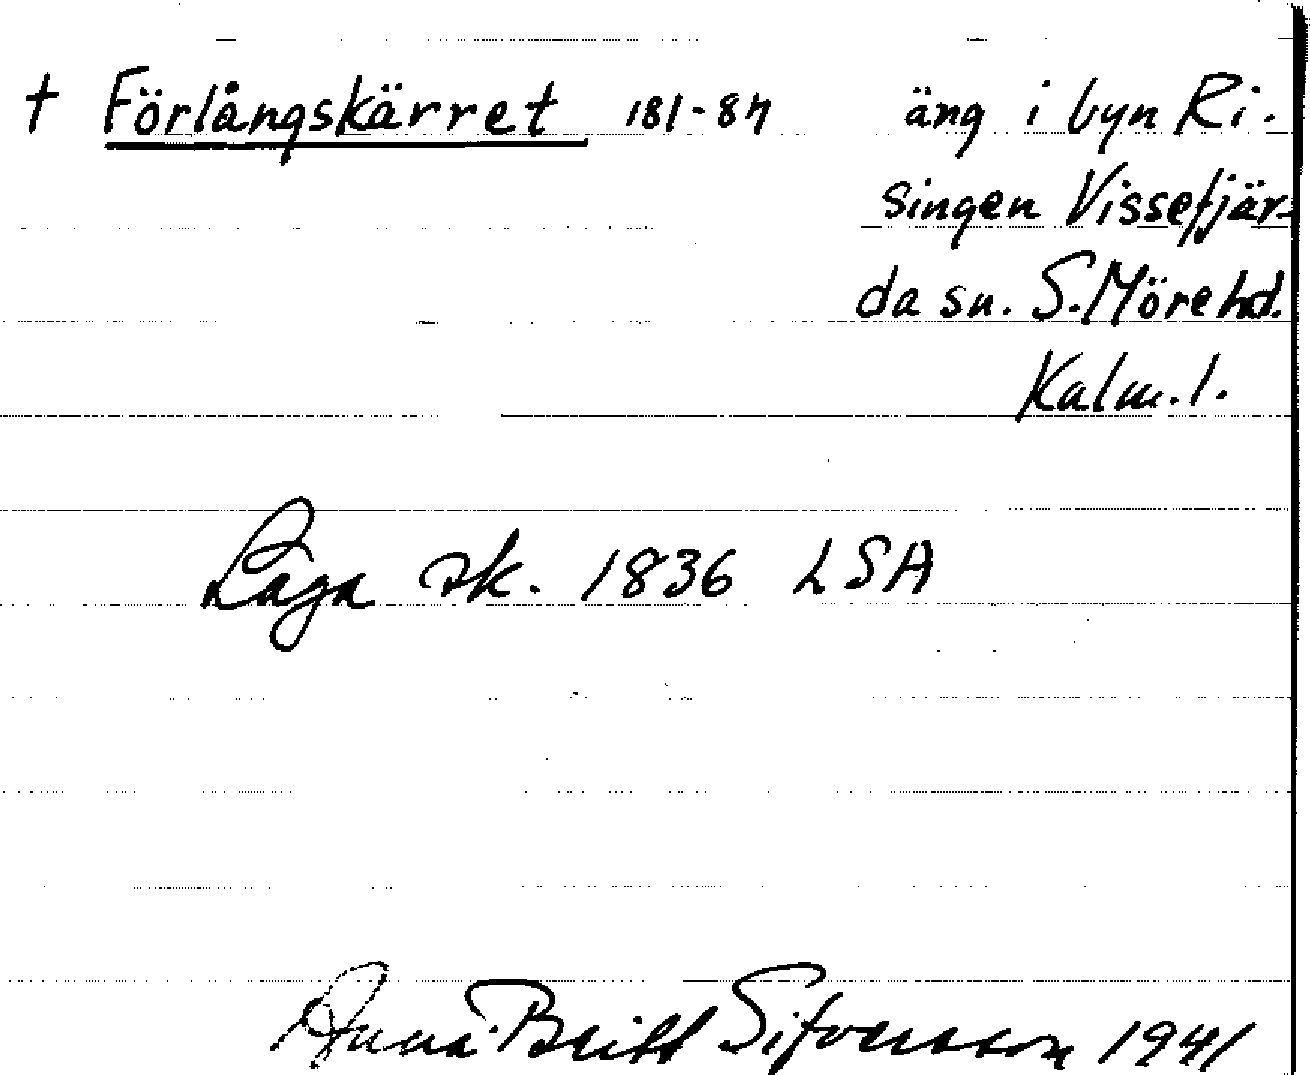 † Förlångskärret 181-87 äng i byn Ri-
singen Vissefjär-
da sn. S. Möre hd.
Kalm. l.
Laga sk. 1836 LSA
Anna-Britt Sifvensson 1941